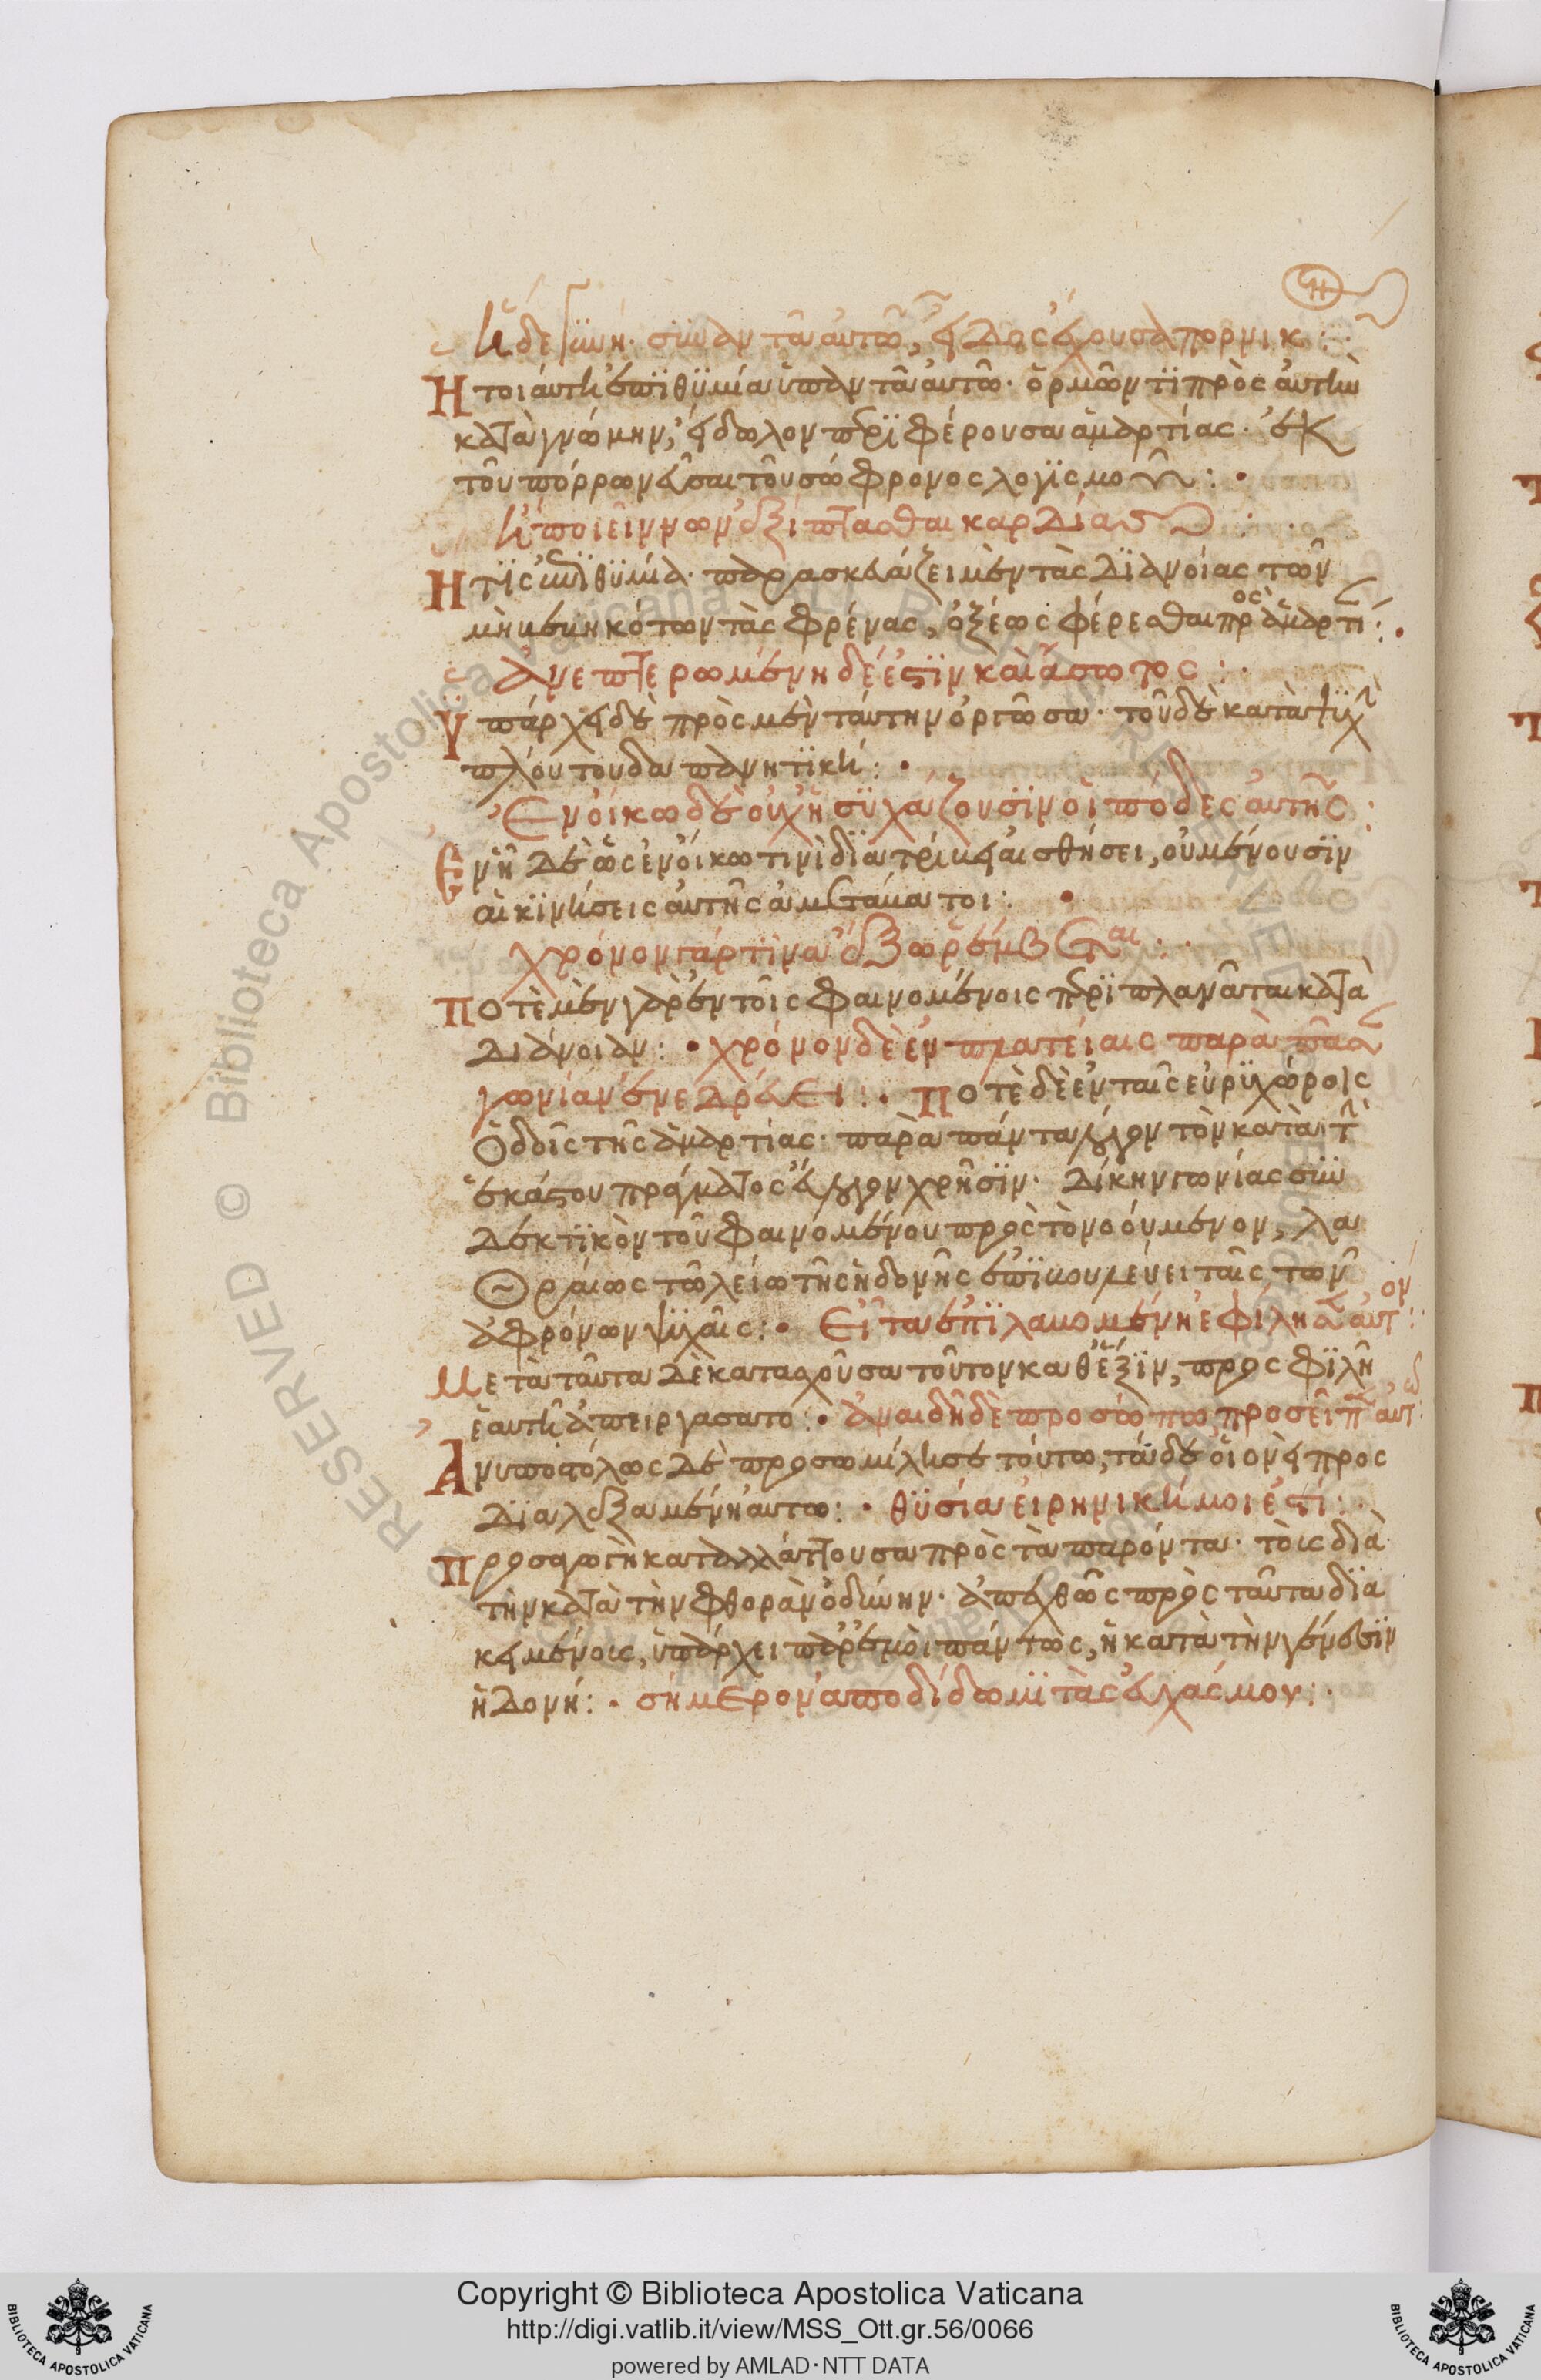 ἡ δὲ γυνὴ συναντᾶ αὐτῶ, εἶδος ἔχουσα πορνικ:
Ἡ τοιάυτη ἐπιθυμία ὑπαντᾶ αὐτῶ· ὁρμῶντι πρὸς ἀυτὴν
κατὰ γνώμην, εἴδωλον περιφέρουσα ἁμαρτίας· ἐκ
τοῦ πόρρω νεῦσαι τοῦ σώφρονος λογισμοῦ:
ἡ ποιεῖ νέων ἐξίπτασθαι καρδίας:
Ἥτις ἐπιθυμία· παρασκευάζει μὲν τὰς διανοίας τῶν
μὴ μεμηκότων τὰς φρένας, ὀξέως φέρεσθαι πρὸς ἁμαρτί:
ἀνεπτερωμένη δέ ἐστιν καὶ ἄσωτος:
Ὑπάρχει δὲ πρὸς μὲν ταύτην ὀργῶσα· τοῦ δὲ κατὰ ψυχὴ
πλούτου δαπανητική:
Ἐν οἴκω δὲ οὐχ ἡσυχάζουσιν οἱ πόδες αὐτῆς:
Ἐν ἧ δὲ ὡς ἐν οἴκω τινὶ διατρίβει αἰσθήσει, οὐ μένουσιν
αἱ κινήσεις αὐτῆς ἀμετάβατοι:
χρόνον γάρ τινα ἔξω ῥέμβεται:
Ποτὲ μὲν γὰρ ἐν τοῖς φαινομένοις περιπλανᾶται κατὰ
διάνοιαν: χρόνον δὲ ἐν πλατείαις παρὰ πᾶσα
γωνίαν ἐνεδρεύει: Ποτὲ δὲ ἐν ταῖς εὐρυχώροις
ὁδοῖς τῆς ἁμαρτίας· παρὰ πάντα λόγον τὸν κατὰ τ
ἑκάστου πράγματος εὔλογον χρῆσιν· δίκην γωνίας συν
δεκτικὸν τοῦ φαινομένου πρὸς τὸ νοούμενον, λα
θραίως τῶ λείω τῆς ἡδονῆς ἐπικουμένει ταῖς τῶν
ἀφρόνων ψυχαῖς: Εἶτα ἐπιλαβομένη ἐφίλησεν αὐτόν:
Μετὰ ταῦτα δὲ κατασχοῦσα τοῦτον καθέξιν, πρὸς φιλὴ
ἑαυτῆ ἀπειργάσατο: ἀναιδῆ δὲ προσώπω προσεῖπεν αὐτ
Ἀνυποστόλως δὲ προσωμίλησε τούτω, τάδε οἱονεὶ προς
διαλεξαμένη αὐτω: θυσία εἰρηνική μοι ἐστί:
Προσαγωγὴ καταλλάττουσα πρὸς τὰ παρόντα· τοῖς διὰ
τὴν κατὰ τὴν φθορὰν ὀδύνην· ἀπεχθῶς πρὸς ταῦτα δια
κειμένοις, ὑπάρχει παρ' ἐμοὶ πάντως, ἡ κατὰ τὴν γένεσιν
ἡδονή: σήμερον ἀποδίδωμι τὰς εὐχάς μου:
Copyright © Biblioteca Apostolica Vaticana
http://digi.vatlib.it/view/MSS_Ott.gr.56/0066
powered by AMLAD·NTT DATA
BIBLIOTECA APOSTOLICA VATICANA
BIBLIOTECA APOSTOLICA VATICANA